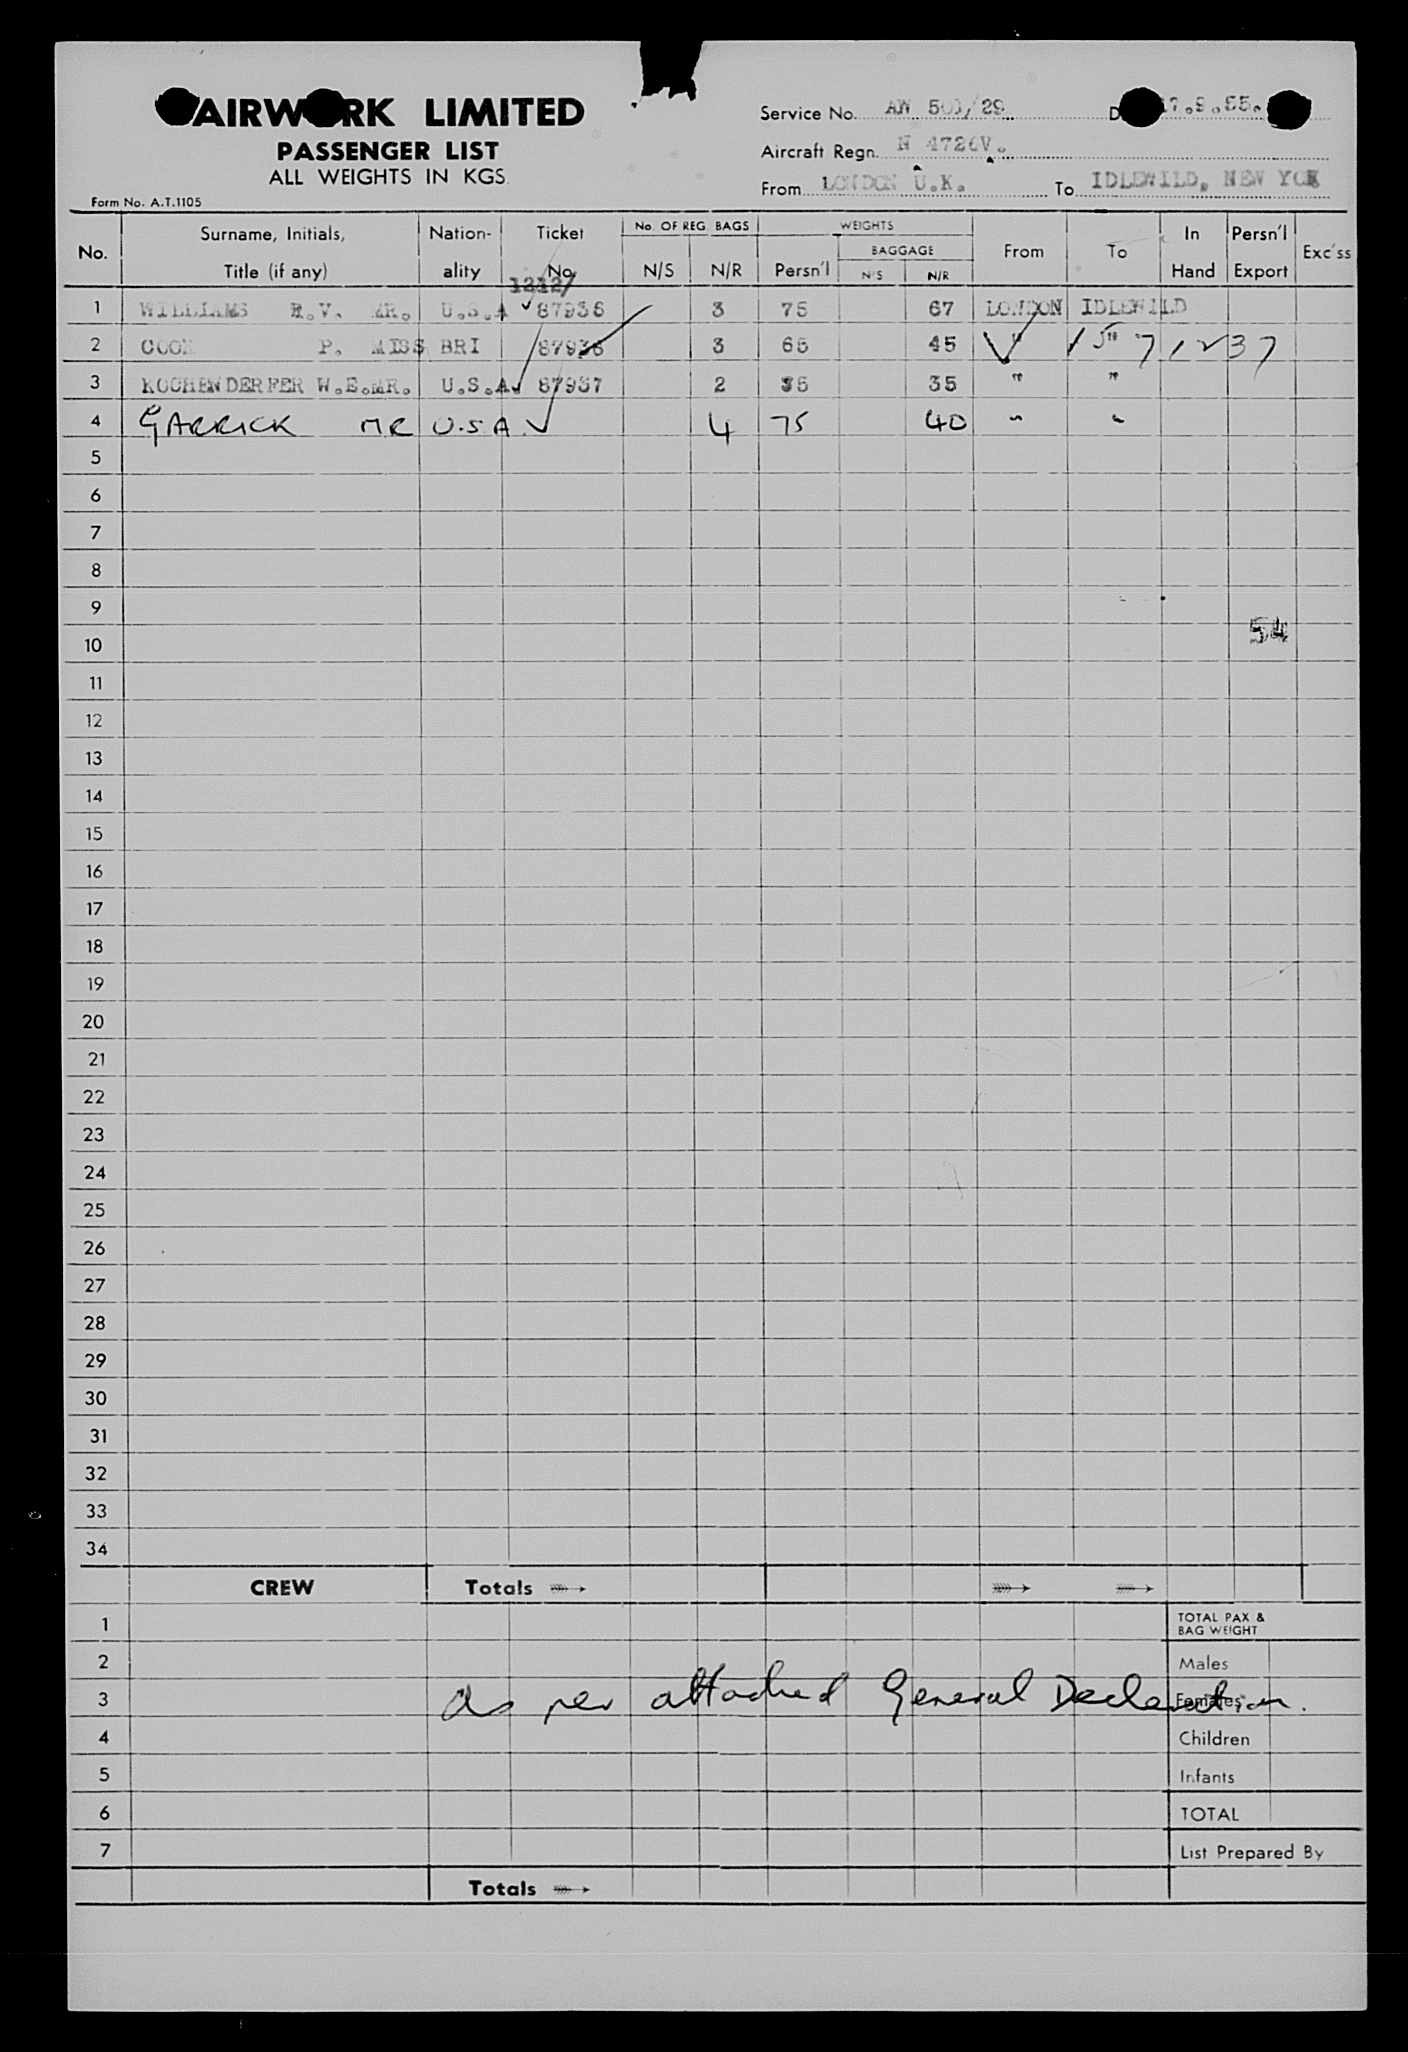 AIRWORK LIMITED
PASSENGER LIST
ALL WEIGHTS IN KGS.
Form No. A.T.1105
Service No. AW 503/29 17.9.55.
Aircraft Regn. N 4726V.
From LONDON U.K. To IDLEWILD, NEW YORK
No. Surname, Initials, Title (if any) Nation-ality Ticket No. No. OF REG. BAGS N/S N/R WEIGHTS Persn'l BAGGAGE N/S N/R From To In Hand Persn'l Export Exc'ss
1212/
1 WILLIAMS R.V. MR. U.S.A 87935 3 75 67 LONDON IDLEWILD
2 COOK P. MISS BRI 87936 3 65 45 " " 71237
3 KOCHENDERFER W.E.MR. U.S.A. 87937 2 35 35 " "
4 GARRICK MR U.S.A. 4 75 40 " "
5
6
7
8
9
54
10
11
12
13
14
15
16
17
18
19
20
21
22
23
24
25
26
27
28
29
30
31
32
33
34
CREW Totals
1 TOTAL PAX & BAG WEIGHT
2 Males
3 as per attached General Declaration. Females
4 Children
5 Infants
6 TOTAL
7 List Prepared By
Totals